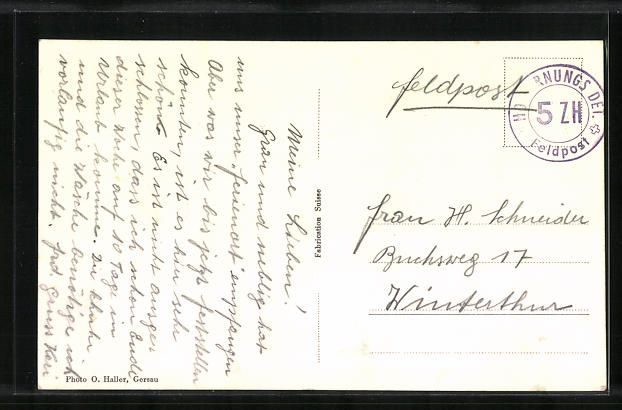 Meine Lieben!
Grau und neblig hat
uns unser "Ferienort" empfangen
Aber was wir bis jetzt feststellen
konnten, ist es hier sehr
schön. Es ist nicht ausges
chlossen, dass ich schon Ende
dieser Woche auf 10 Tage in
Urlaub komme. Die
und die Wäsche benötige ich
vorläufig nicht. Gruss
Photo O. Haller, Gersau
Fabrication Suisse
Feldpost
RNUNGS DET.
5 ZH
Feldpost
Frau H. Schneider
Buchsweg 17
Winterthur